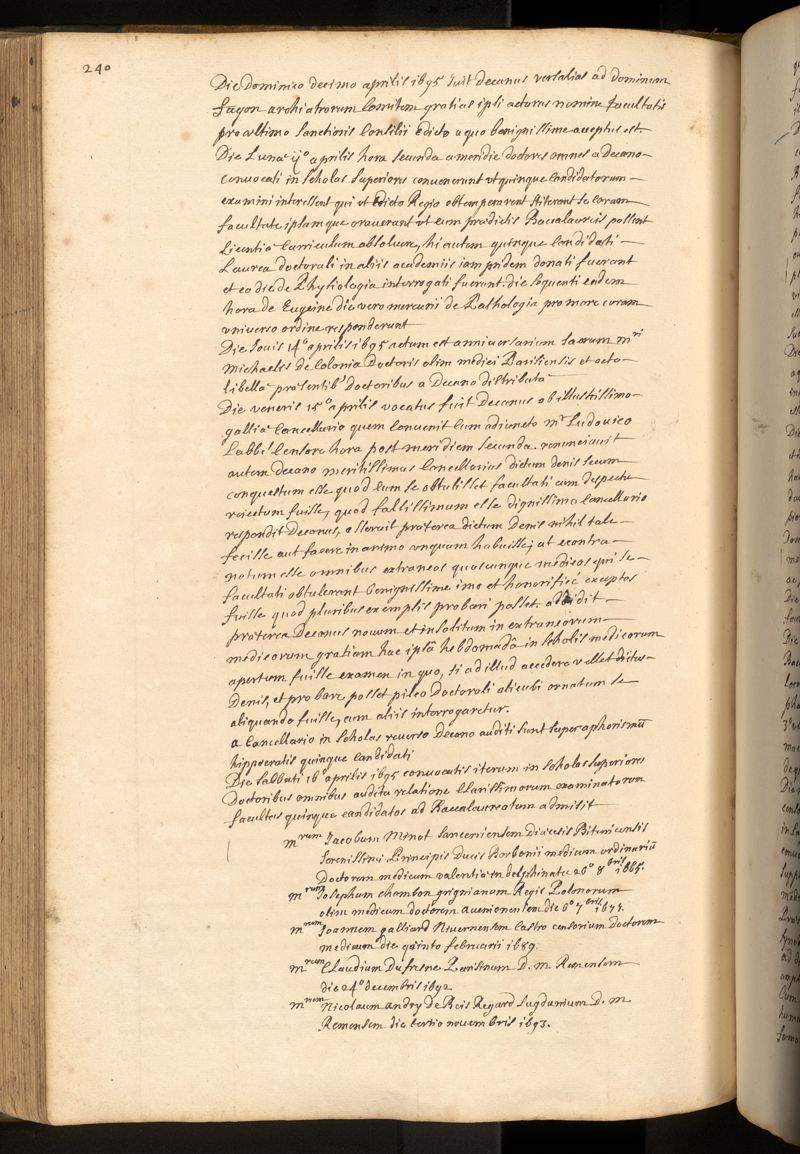 240
Die Dominico decimo aprilis 1695 Ivit Decanus versalias ad dominum
fagon archiatrorum Comitem gratias ipsi acturus nomine facultatis
pro ultimo Sanctioris Consilii Edicto a quo benignissime acceptus est.
Die Lunæ ij° aprilis hora secunda a meridie doctores omnes a Decano
convocati in scholas superiores convenerunt ut quinque Candidatorum
examini interessent qui ut Edicto Regio obtemperarent stiterant se coram
facultate ipsamque oraverant ut cum prædictis Baccalaureis possent
Licentiæ Curriculum absolvere, hi autem quinque Candidati
Laurea doctorali in aliis academiis iam pridem donati fuerant
et eo die de Physiologia interrogati fuerunt. die sequenti eadem
hora de Eugeine die vero mercurii de Pathologia pro more coram
universo ordine responderunt
Die Iovis 14° aprilis 1695 actum est anniversarium sacrum mri
Michaelis de Colonia Doctoris olim medici Parisiensis et octo
libellæ præsentib' Doctoribus a Decano distributæ
Die veneris 15° aprilis vocatus fuit Decanus ab illustissimo
galliæ Cancellario quem Convenit Cum adiuncto mro Ludovico
Labbé Censore hora post meridiem secunda. renunciavit
autem decano meritissimus Cancellarius dictum denis secum
conquestum esse quod cum se obtulisset facultati cum despectu
reiectum fuisse, quod falsissimum esse dignissimo Cancellario
respondit Decanus, asseruit præterea dictum Denis nihil tale
fecisse aut facere in animo unquam habuisse; at econtra
notum esse omnibus extraneos quoscunque medicos qui se
facultati obtulerant benignissime imo et honorificé exceptos
fuisse quod pluribus exemplis probari posset. addidit
præterea Decanus novum et insolitum in extraneorum
medicorum gratiam hac ipsâ hebdomadâ in scholis medicorum
apertum fuisse examen in quo, si ad illud accedere vellet dictus
Denis, et probare posset pileo Doctorali alicubi ornatum se
aliquando fuisse, cum aliis interrogaretur.
a Cancellario in scholas reverso Decano auditi sunt super aphorismū
hippocratis quinque Candidati
Die sabbati 16° aprilis 1695 convocatis iterum in scholas superiores
Doctoribus omnibus audita relatione Clarissimorum examinatorum
facultas quinque candidatos ad Baccalaureatum admisit
mrum Iacobum Minot Sancerriensem Diæcesis Bituricensis
serenissimi Principis Ducis Borbonii medicum ordinariū
Doctorem medicum valentiæ in delphinatu 26° 8bris 1665.
mrum Iosephum chambon grignianum Regis Polonorum
olim medicum doctorem avenionensem die 6° 7bris 1673.
mrum Ioannem galliard Nivernensem Castro censorium Doctorem
medicum die quinto februarii 1689.
mrum Claudium Dufresne Parisinum D. m. Remensem
die 24° decembris 1692
mrum Nicolaum andry De Bois Regard Lugdunium D. m.
Remensem die tertio novembris 1693.